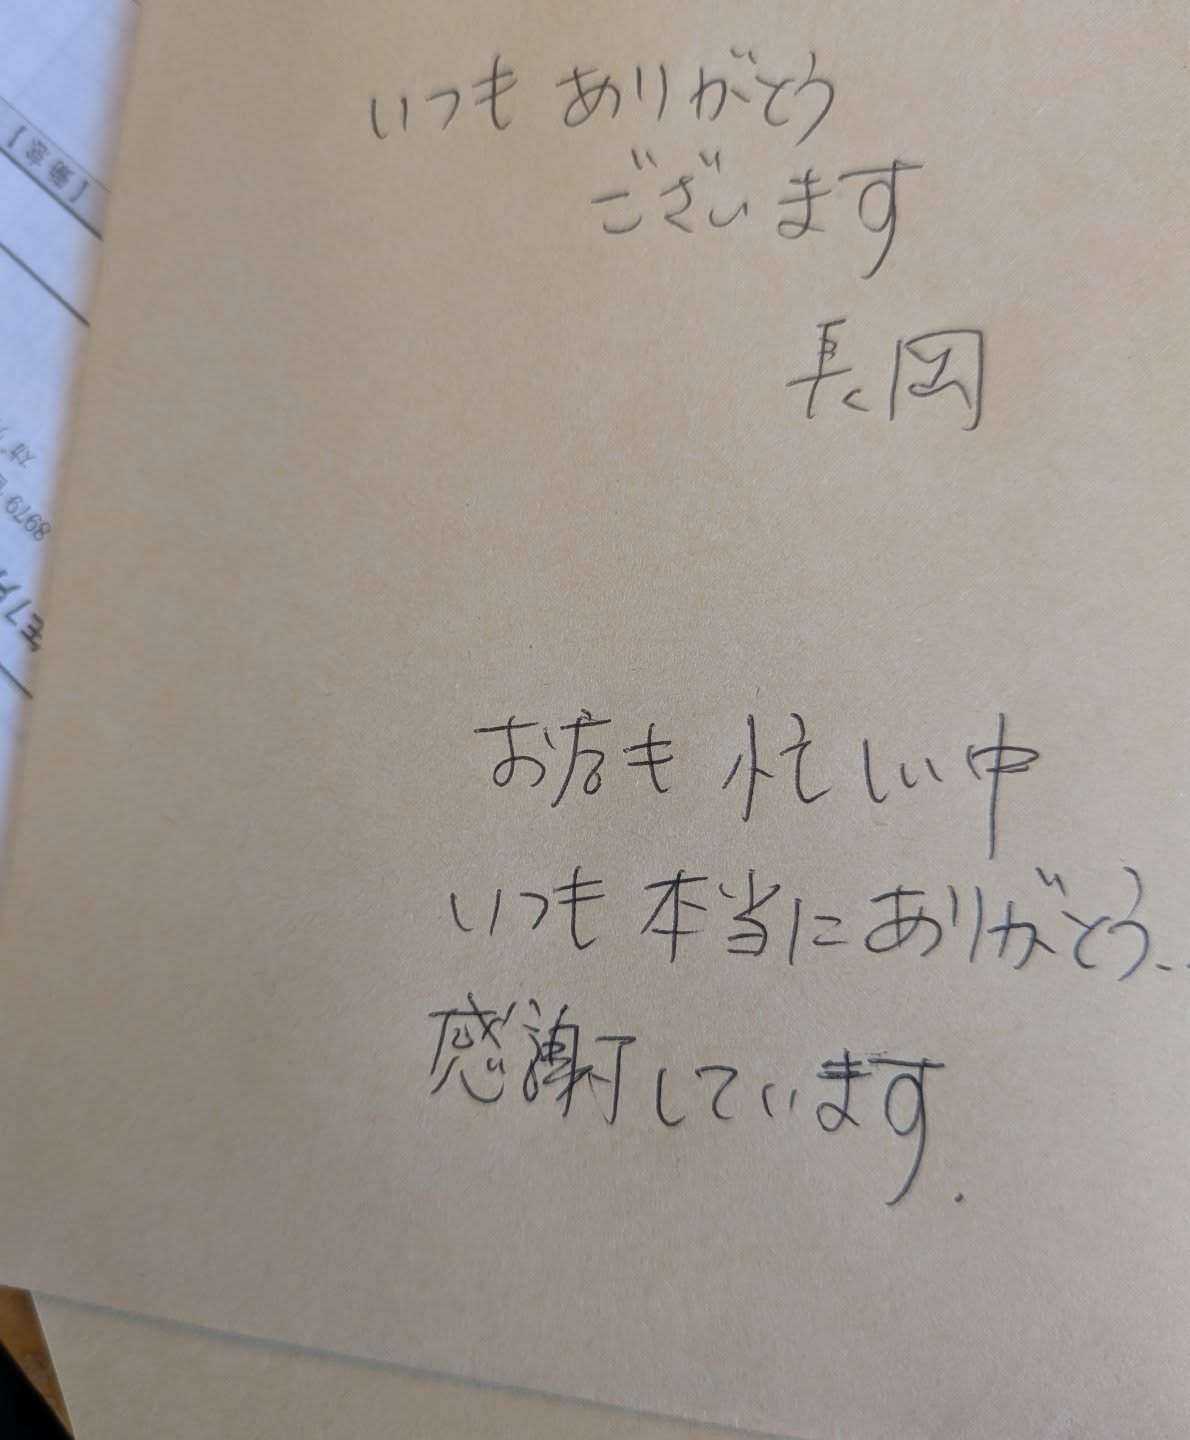 いつもありがとう
ございます
長岡
お店も忙しい中
いつも本当にありがとう..
感謝しています.
8979